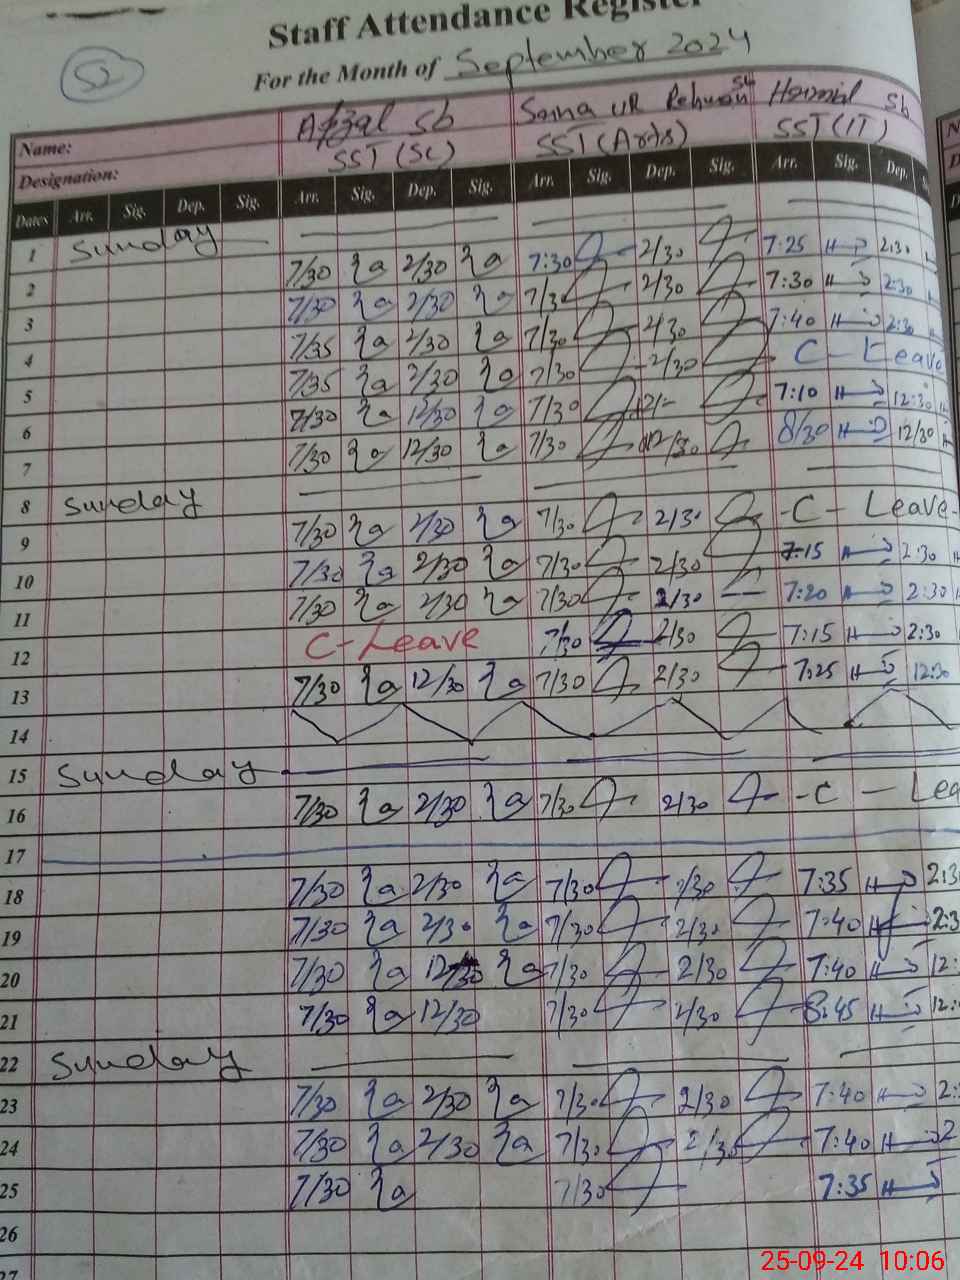 Staff Attendance Register
52
For the Month of September 2024
Name: Afzal Sb Sana UR Rehman Sb Hazrat Sb
Designation: SST (SC) SST (Arts) SST (IT)
Dates Arr. Sig. Dep. Sig. Arr. Sig. Dep. Sig. Arr. Sig. Dep. Sig. Arr. Sig. Dep.
1 Sunday
2 7/30 2/30 7:30 2/30 7:25 2:30
3 7/30 2/30 7/30 2/30 7:30 2:30
4 7/35 2/30 7/30 2/30 7:40 2:30
5 7/35 2/30 7/30 2/30 C-Leave
6 7/30 12/30 7/30 12/- 7:10 12:30
7 7/30 12/30 7/30 12/30 8/30 12/30
8 Sunday
9 7/30 2/30 7/30 2/30 -C- Leave-
10 7/30 2/30 7/30 2/30 7:15 2:30
11 7/30 2/30 7/30 2/30 7:20 2:30
12 C-Leave 7/30 2/30 7:15 2:30
13 7/30 12/30 7/30 2/30 7:25 12:30
14
15 Sunday
16 7/30 2/30 7/30 2/30 -C-
17
18 7/30 2/30 7/30 2/30 7:35
19 7/30 2/30 7/30 2/30 7:40
20 7/30 12/30 7/30 2/30 7:40
21 7/30 12/30 7/30 2/30 8:45
22 Sunday
23 7/30 2/30 7/30 2/30 7:40
24 7/30 2/30 7/30 2/30 7:40
25 7/30 7/30 7:35
26
27
25-09-24 10:06